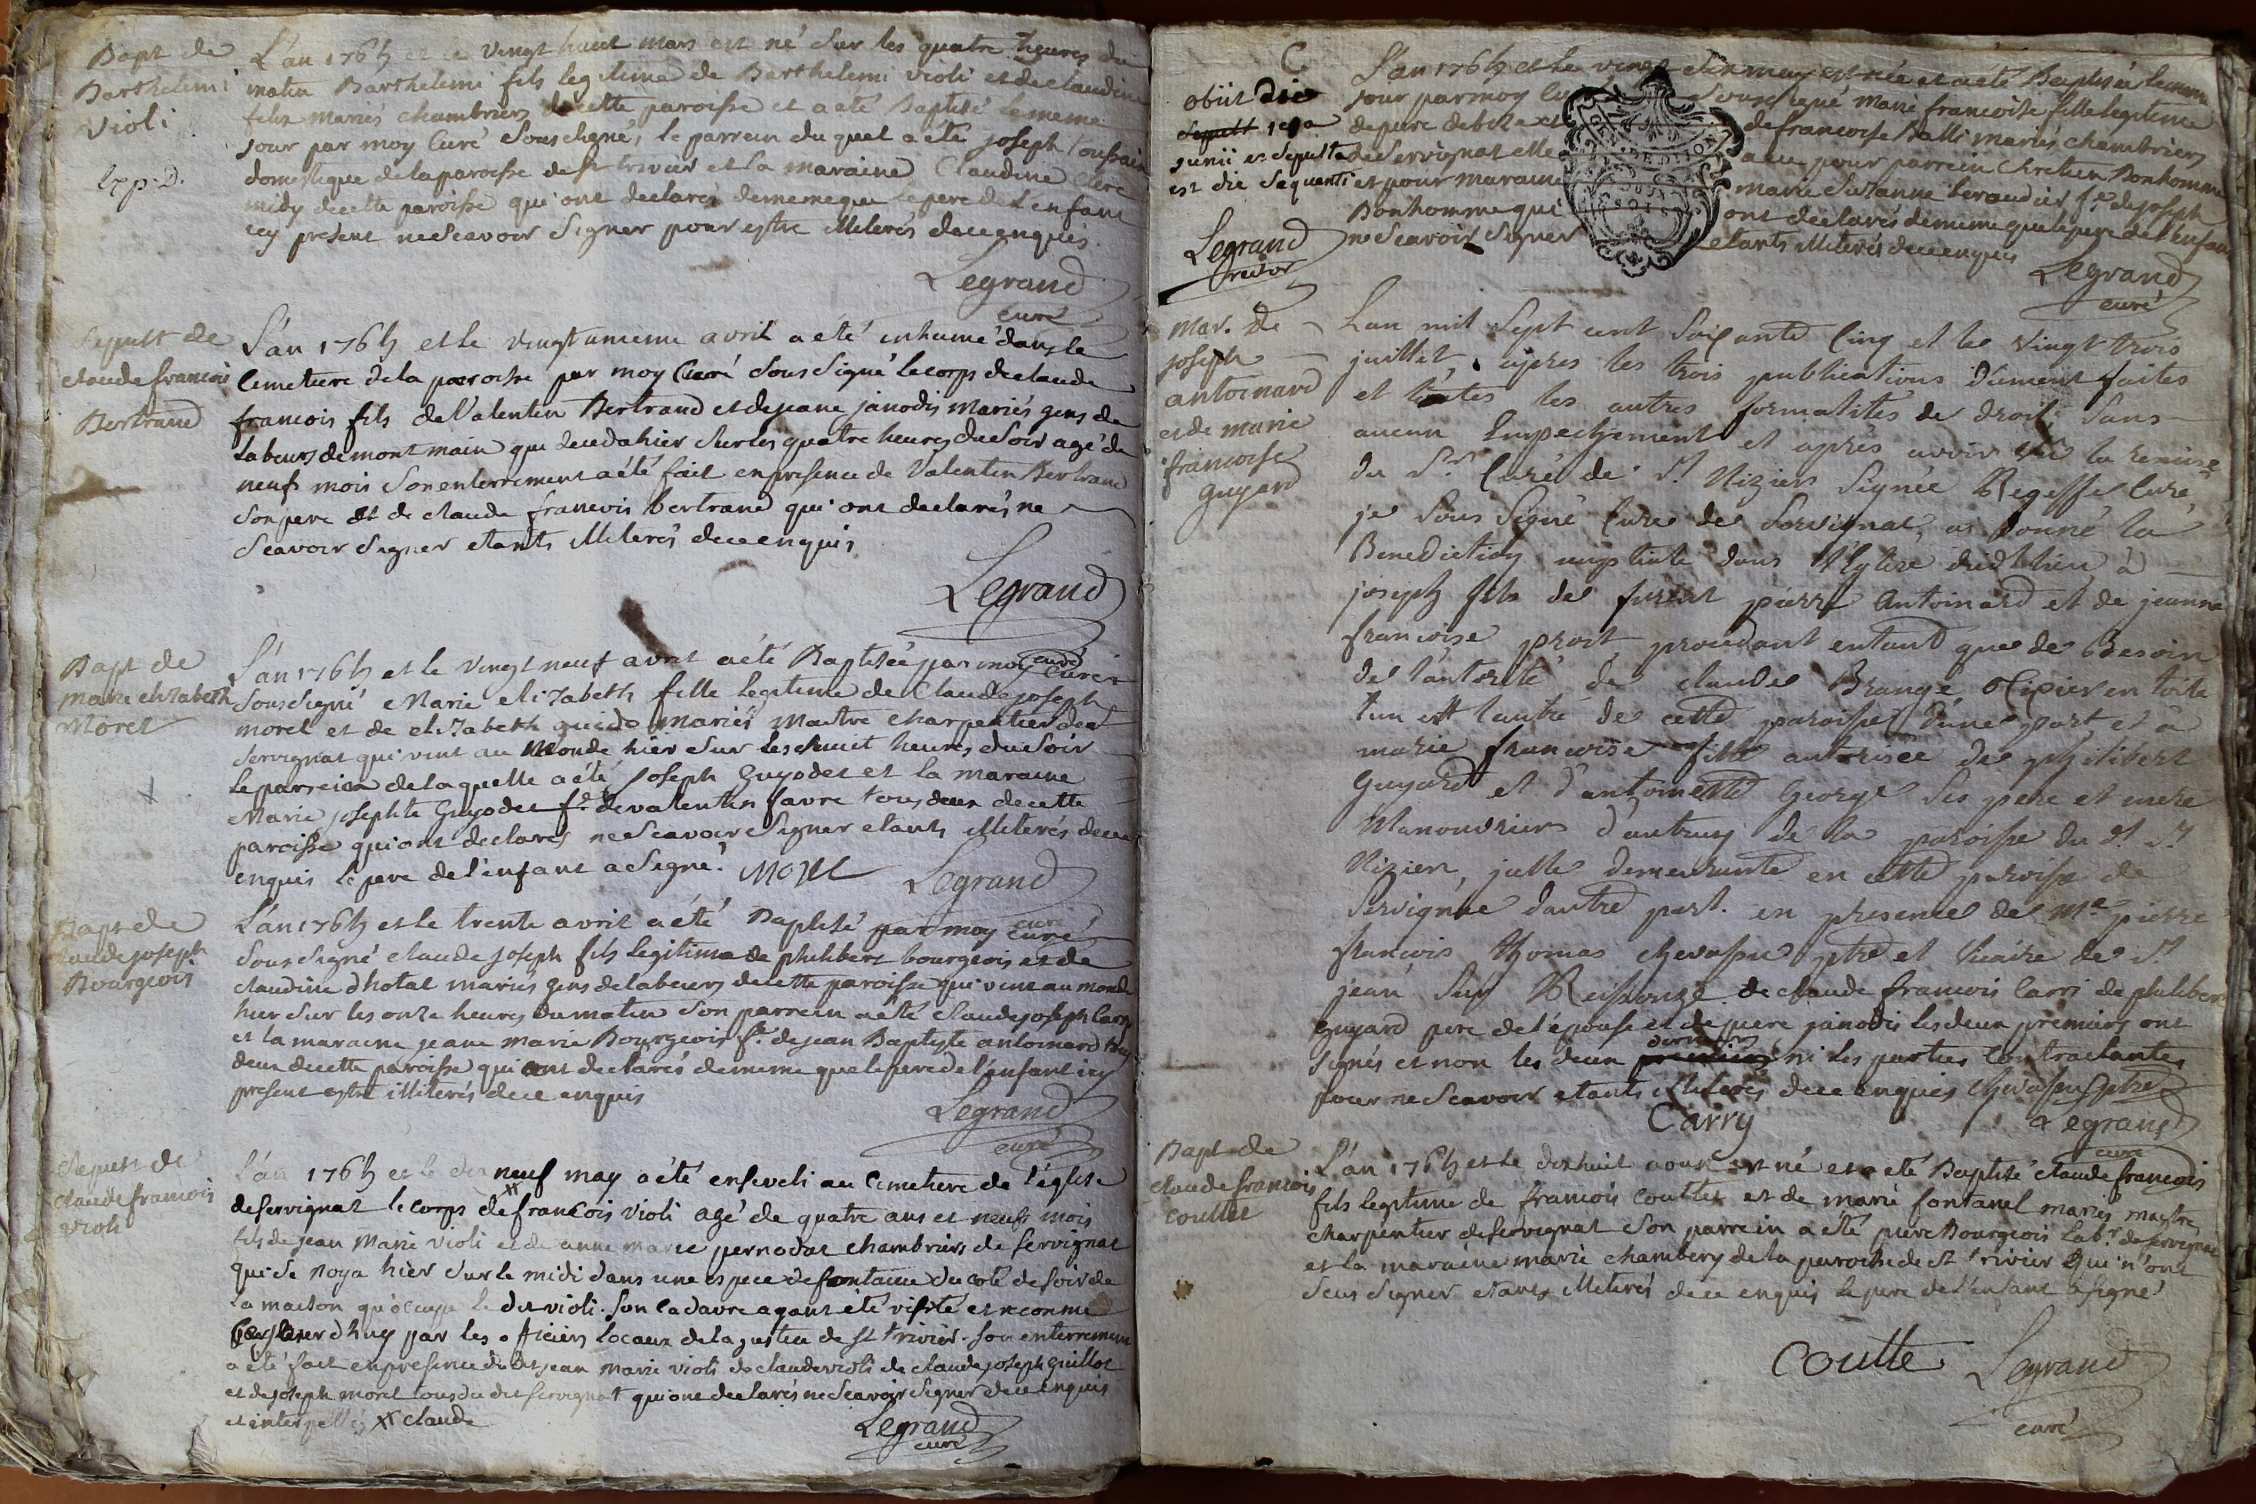 Bapt de
Barthelemi
Violi
L'an 1765 et le vingt huit mars est né sur les quatre heures du
matin Barthelemi fils legitime de Barthelemi violi et de claudine
mariés chambriers de cette paroisse et a eté Baptisé le meme
jour par moy Curé Soussigné, le parrein du quel a eté joseph
domestique de la paroisse de st trivier et la maraine Claudine Clerc
midy de cette paroisse qui ont declarés de meme que le pere de l'enfant
icy present ne Scavoir Signer pour estre illiterés de ce enquis.
Legrand
curé
Sepult de
claude francois
Bertrand
L'an 1765 et le vingtunieme avril a eté inhumé dans le
Cimetiere de la paroisse par moy Curé Sous Signé le corps de claude
francois fils de Valentin Bertrand et de jeane janodis Mariés gens de
Labeurs de montmain qui deceda hier sur les quatre heures du Soir agé de
neuf mois Son enterrement a été fait en presence de Valentin Bertrand
Son pere et de claude francois bertrand qui ont declarés ne
Scavoir Signer etants illiterés de ce enquis
Legrand
curé
Bapt de
Marie elizabeth
Morel
L'an 1765 et le vingt neuf avril a eté Baptisée par moy Curé
Soussigné Marie elizabeth fille legitime de Claude joseph
morel et de elizabeth mariés Maitre charpentier de
Servignat qui vint au Monde hier sur les huit heures du Soir
le parrein de laquelle a eté joseph Guyodet et la maraine
Marie josephte Guyodet f.e de valentin favre tous deux de cette
paroisse qui ont declarés ne Scavoir Signer etants illiterés de ce
enquis le pere de l'enfant a Signé. Morel Legrand
curé
Bapt de
claude joseph
Bourgeois
L'an 1765 et le trente avril a eté Baptisé par moy curé
sous Signé claude joseph fils legitime de philibert bourgeois et de
claudine dhotal mariés gens de labeurs de cette paroisse qui vint au monde
hier sur les onze heures du matin Son parrein a eté Claude joseph Carry
et la maraine jeane marie Bourgeois f.e de jean Baptiste antoinard tous
deux de cette paroisse qui ont declarés de meme que le pere de l'enfant icy
present estre illiterés de ce enquis
Legrand
curé
Sepult de
claude francois
Violi
L'an 1765 et le dix neuf may a eté enseveli au Cimetiere de l'église
de servignat le corps de francois violi agé de quatre ans et neufs mois
fils de jean Marie violi et de anne marie pernodat chambriers de servignat
qui se noya hier sur le midi dans une espece de fontaine du coté de soir de
la maison qu'occupe le dit violi. Son cadavre ayant été visité et reconnu
d'huy par les officiers locaux de la justice de st trivier. Son enterrement
a été fait en presence du dit jean marie violi de claude violi de claude joseph guillot
et de joseph morel tous du dit servignat qui ont declarés ne Scavoir Signer de ce enquis
et interpellés, claude
Legrand
curé
C
obiit die
Sepult
junii et Sepulta
est die Sequenti
Legrand
rector
L'an 1765 et le vingt may est née et a eté Baptisée le meme
jour par moy Sous Signé Marie francoise fille legitime
de pierre de francoise Balli mariés chambriers
de Servignat elle a eu pour parrein Chretien Bonhomme
et pour maraine marie Suzanne beraudier f.e de joseph
Bonhomme qui ont declarés de meme que le pere de l'enfant
ne Scavoir Signer etants illiterés de ce enquis
Legrand
curé
Mar. de
joseph
antoinard
et de marie
francoise
guyard
L'an mil Sept cent Soixante Cinq et le vingt trois
juillet, apres les trois publications dument faites
et toutes les autres formalités de droit, Sans
aucun Empechement et après avoir vu la remise
du Sr. Curé de St Nizier Signée Regeffe Curé
je Sous Signé Curé de Servignat, a donné la
Benediction nuptiale dans l'Eglise dudt lieu à
joseph fils de furent pierre antoinard et de jeanne
francoise proit, procedant entant que de Besoin
de l'autorité de claude Brangé en toile
l'un et l'autre de cette paroisse d'une part et à
marie francoise fille autorisée de philibert
Guyard et d'antoinette George Ses pere et mere
Manouvriers d'autruy de la paroisse du dt St
Nizier, jcelle demeurante en cette paroisse de
Servignat d'autre part. en presence de Me pierre
francois thomas chevassu ptre et vicaire de St
jean Sur Reissouze de claude francois Carri de philibert
guyard pere de l'épouse et de piere janodis les deux premiers ont
signés et non les deux derniers ni les parties Contractantes
pour ne Scavoir etants illiterés de ce enquis Chevassu ptre
Carry Legrand
curé
Bapt de
claude francois
coullet
L'an 1765 et le dixhuit aout est né et a eté Baptisé claude francois
fils legitime de francois coullet et de marie fontanel mariés maitre
charpentier de servignat Son parrein a eté piere Bourgeois Lab.r de servignat
et la maraine marie chambery de la paroisse de st trivier qui n'ont
Sceus Signer etants illiterés de ce enquis le pere de l'enfant a signé
Coulle Legrand
curé